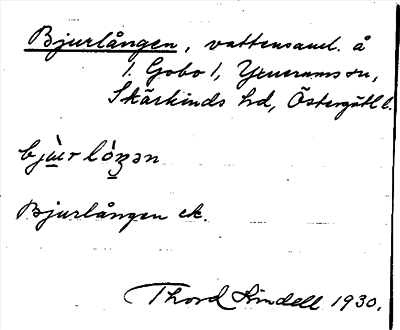 Bjurlången, vattensaml. å
1. Gobo 1, Yxnerums sn,
Skärkinds hd, Östergötl l.
bjùrlòŋən
Bjurlången ek.
Thord Lindell 1930.